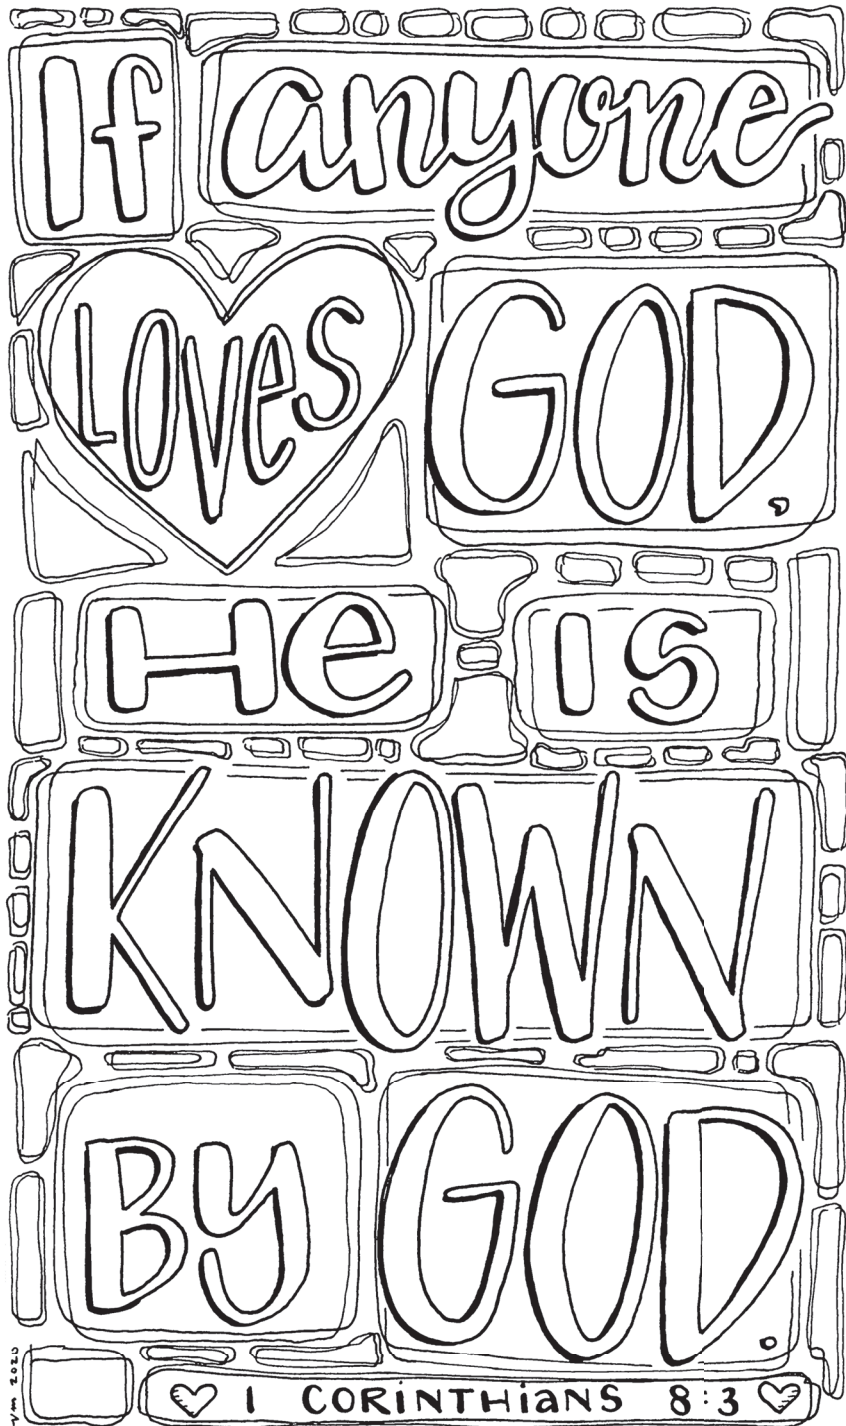 If anyone
Loves GOD,
He is
KNOWN
By GOD.
1 CORiNTHiaNS 8:3
vm 2020